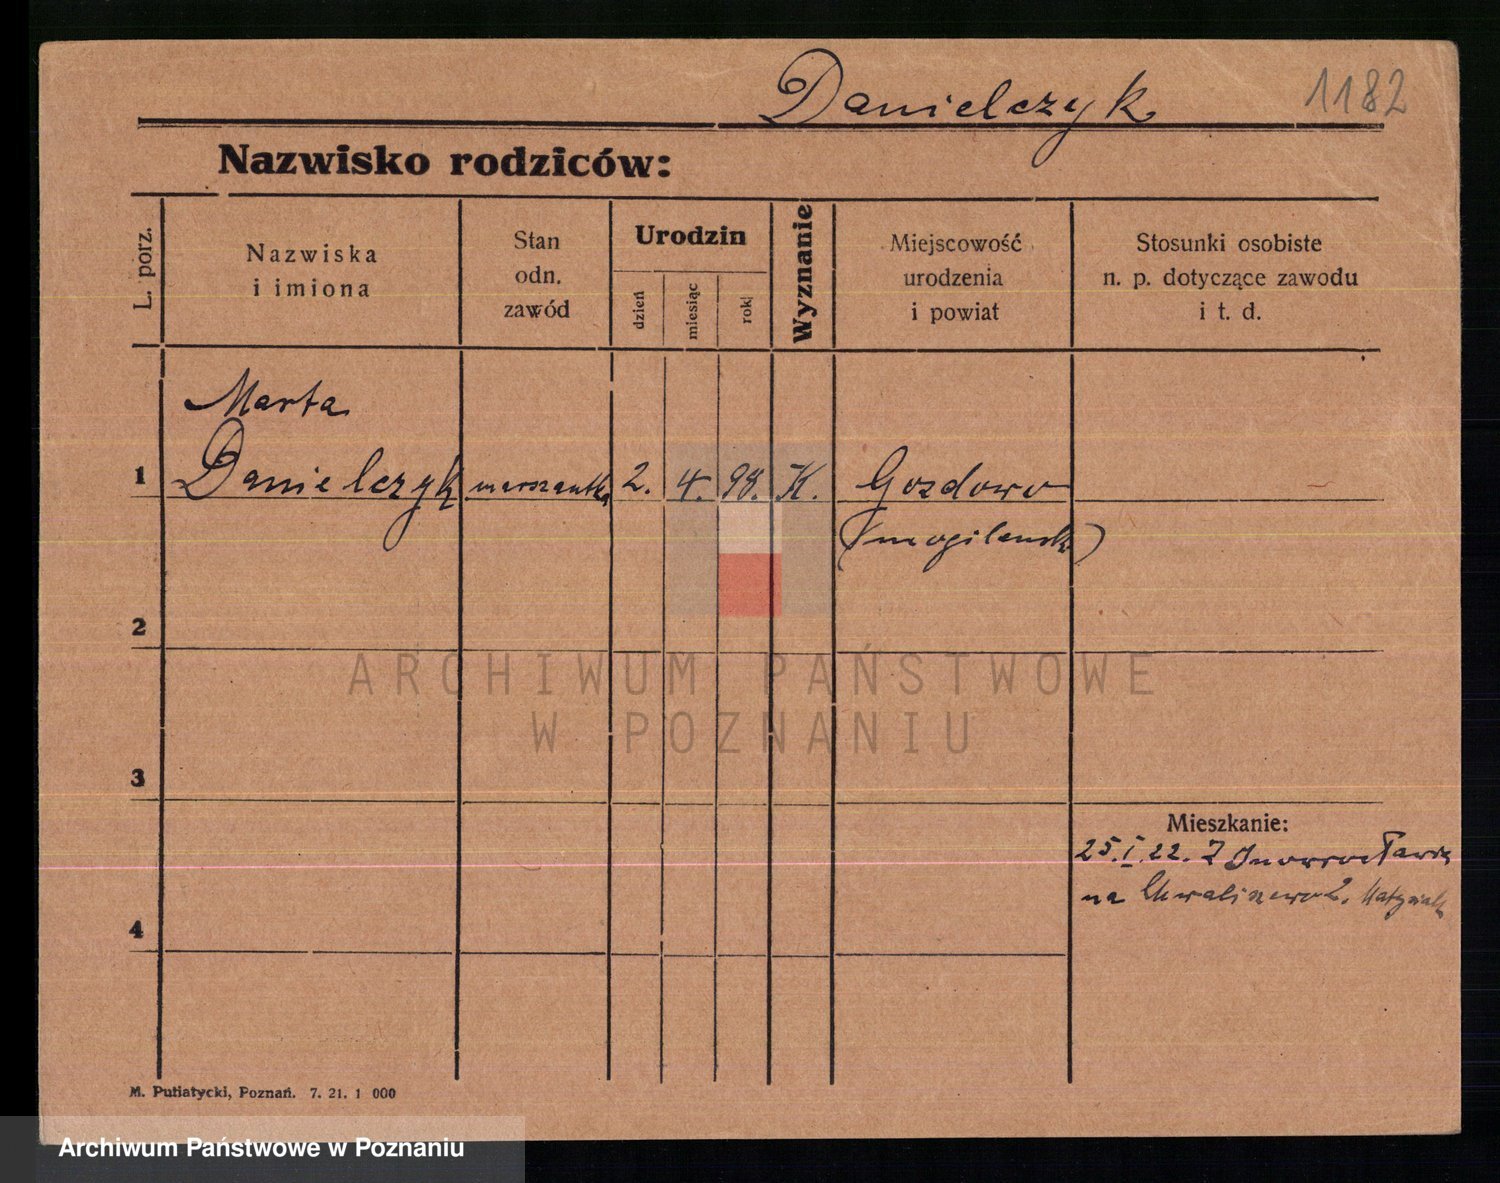 Danielczyk 1182
Nazwisko rodziców:
L. porz.
Nazwiska
i imiona
Stan
odn.
zawód
Urodzin
dzień
miesiąc
rok
Wyznanie
Miejscowość
urodzenia
i powiat
Stosunki osobiste
n. p. dotyczące zawodu
i t. d.
Marta
1 Danielczyk 2. 4. 98. K. Gozdowo
2
3
Mieszkanie:
25.I.22. Z Inowrocławia
na Chwaliszewo 2.
4
M. Putiatycki, Poznań. 7. 21. 1 000
ARCHIWUM PAŃSTWOWE
W POZNANIU
Archiwum Państwowe w Poznaniu